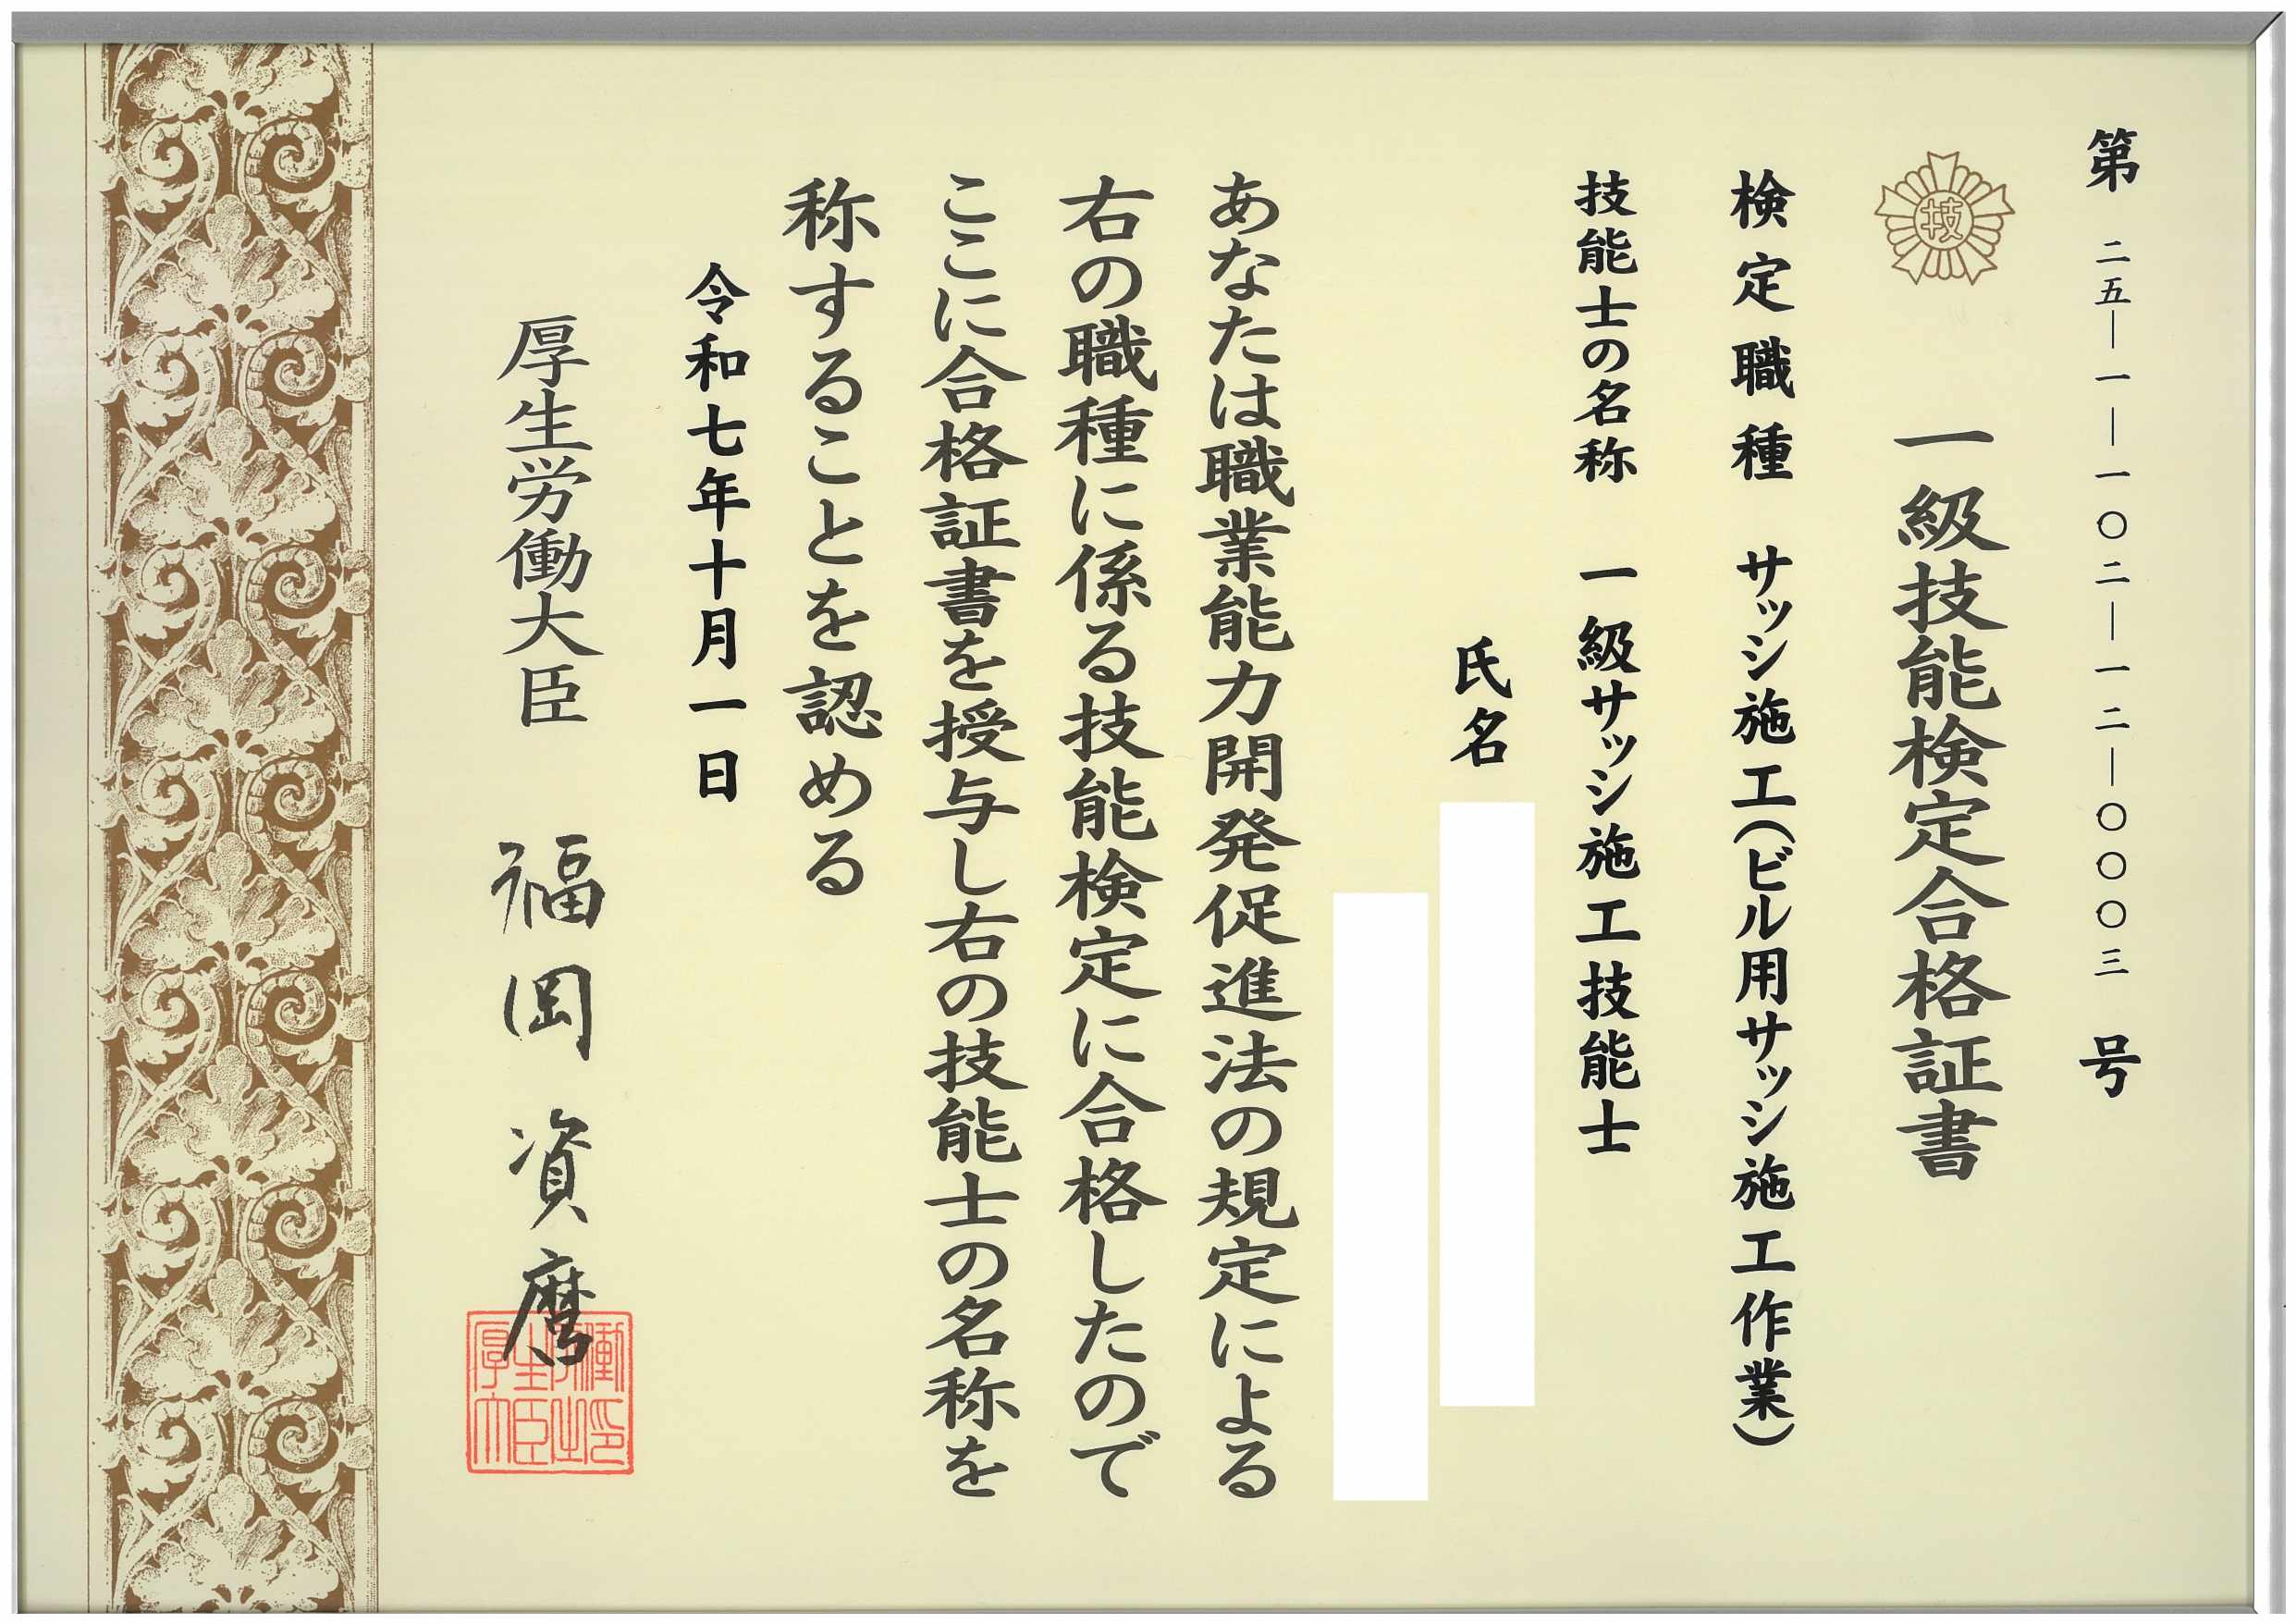 第 二五―一―一〇二―一二―〇〇〇三 号
技
一級技能検定合格証書
検定職種 サッシ施工(ビル用サッシ施工作業)
技能士の名称 一級サッシ施工技能士
氏名
あなたは職業能力開発促進法の規定による
右の職種に係る技能検定に合格したので
ここに合格証書を授与し右の技能士の名称を
称することを認める
令和七年十月一日
厚生労働大臣 福岡資麿